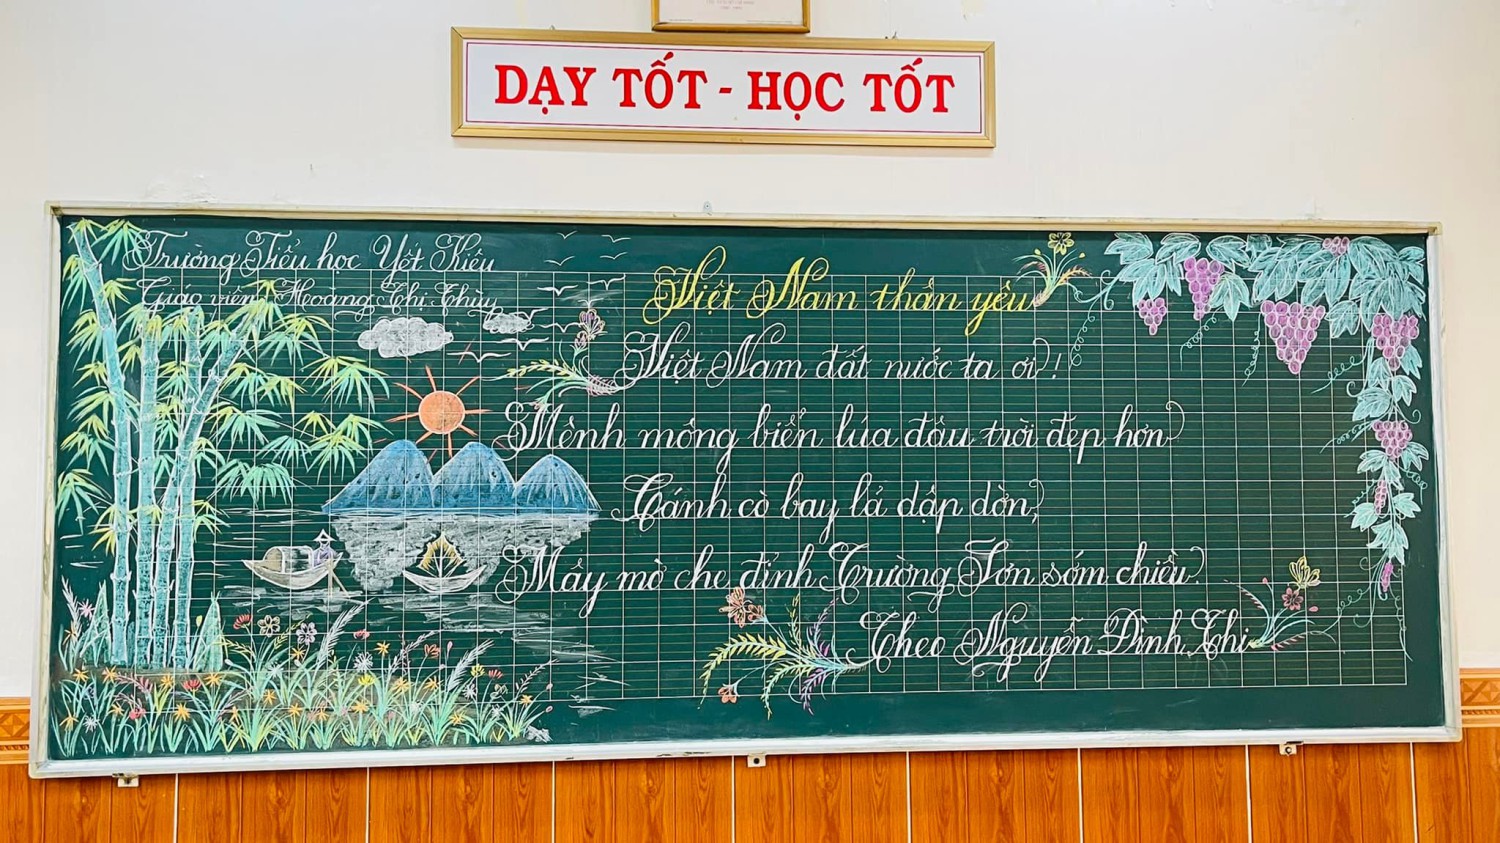 DẠY TỐT - HỌC TỐT
Trường Tiểu học Yết Kiêu
Giáo viên: Hoàng Thị Thùy
Việt Nam thân yêu
Việt Nam đất nước ta ơi!
Mênh mông biển lúa đâu trời đẹp hơn
Cánh cò bay lả dập dờn,
Mây mờ che đỉnh Trường Sơn sớm chiều.
Theo Nguyễn Đình Thi